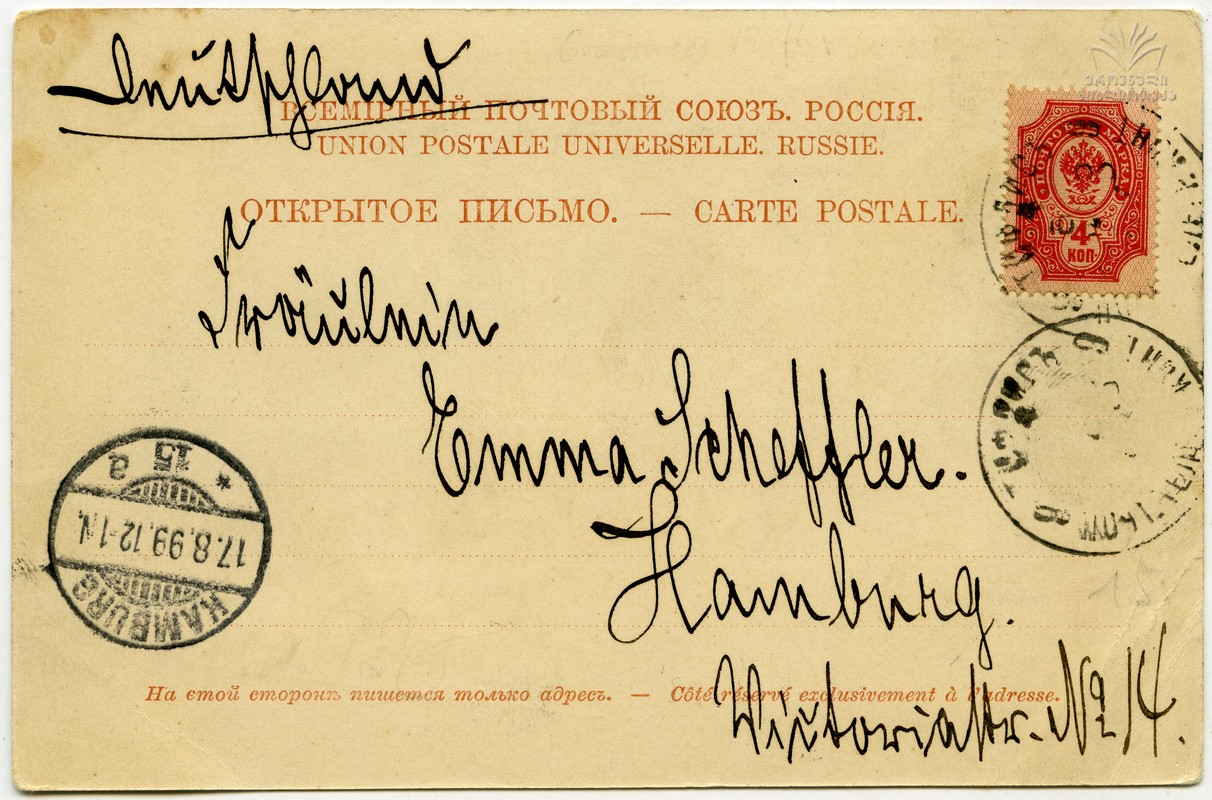 Deutschland
ВСЕМІРНЫЙ ПОЧТОВЫЙ СОЮЗЪ. РОССІЯ.
UNION POSTALE UNIVERSELLE. RUSSIE.
ОТКРЫТОЕ ПИСЬМО. — CARTE POSTALE.
ПОЧТОВАЯ МАРКА
4
КОП.
Fräulein
Emma Scheffler.
Hamburg.
Victoriastr. № 14.
HAMBURG
17.8.99.12-1N.
* 15 a
ТИФЛИСЪ
На етой сторонѣ пишется только адресъ. — Côté réservé exclusivement à l'adresse.
ეროვნული